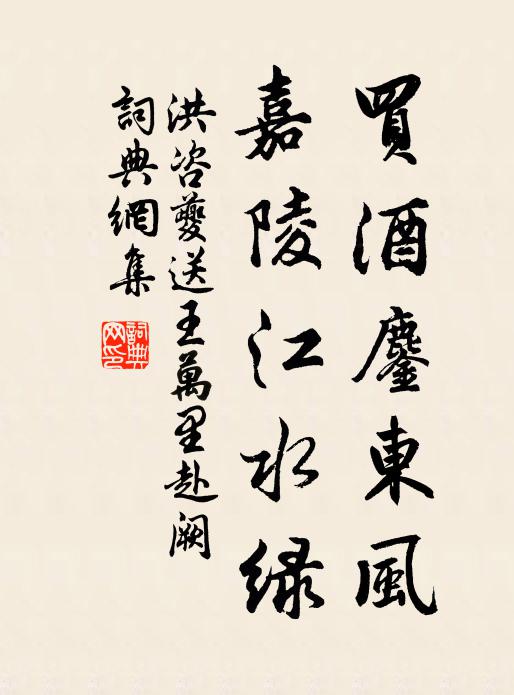 買酒鏖東風
嘉陵江水綠
洪咨夔送王萬里赴闕
詞典網集
詞典网印